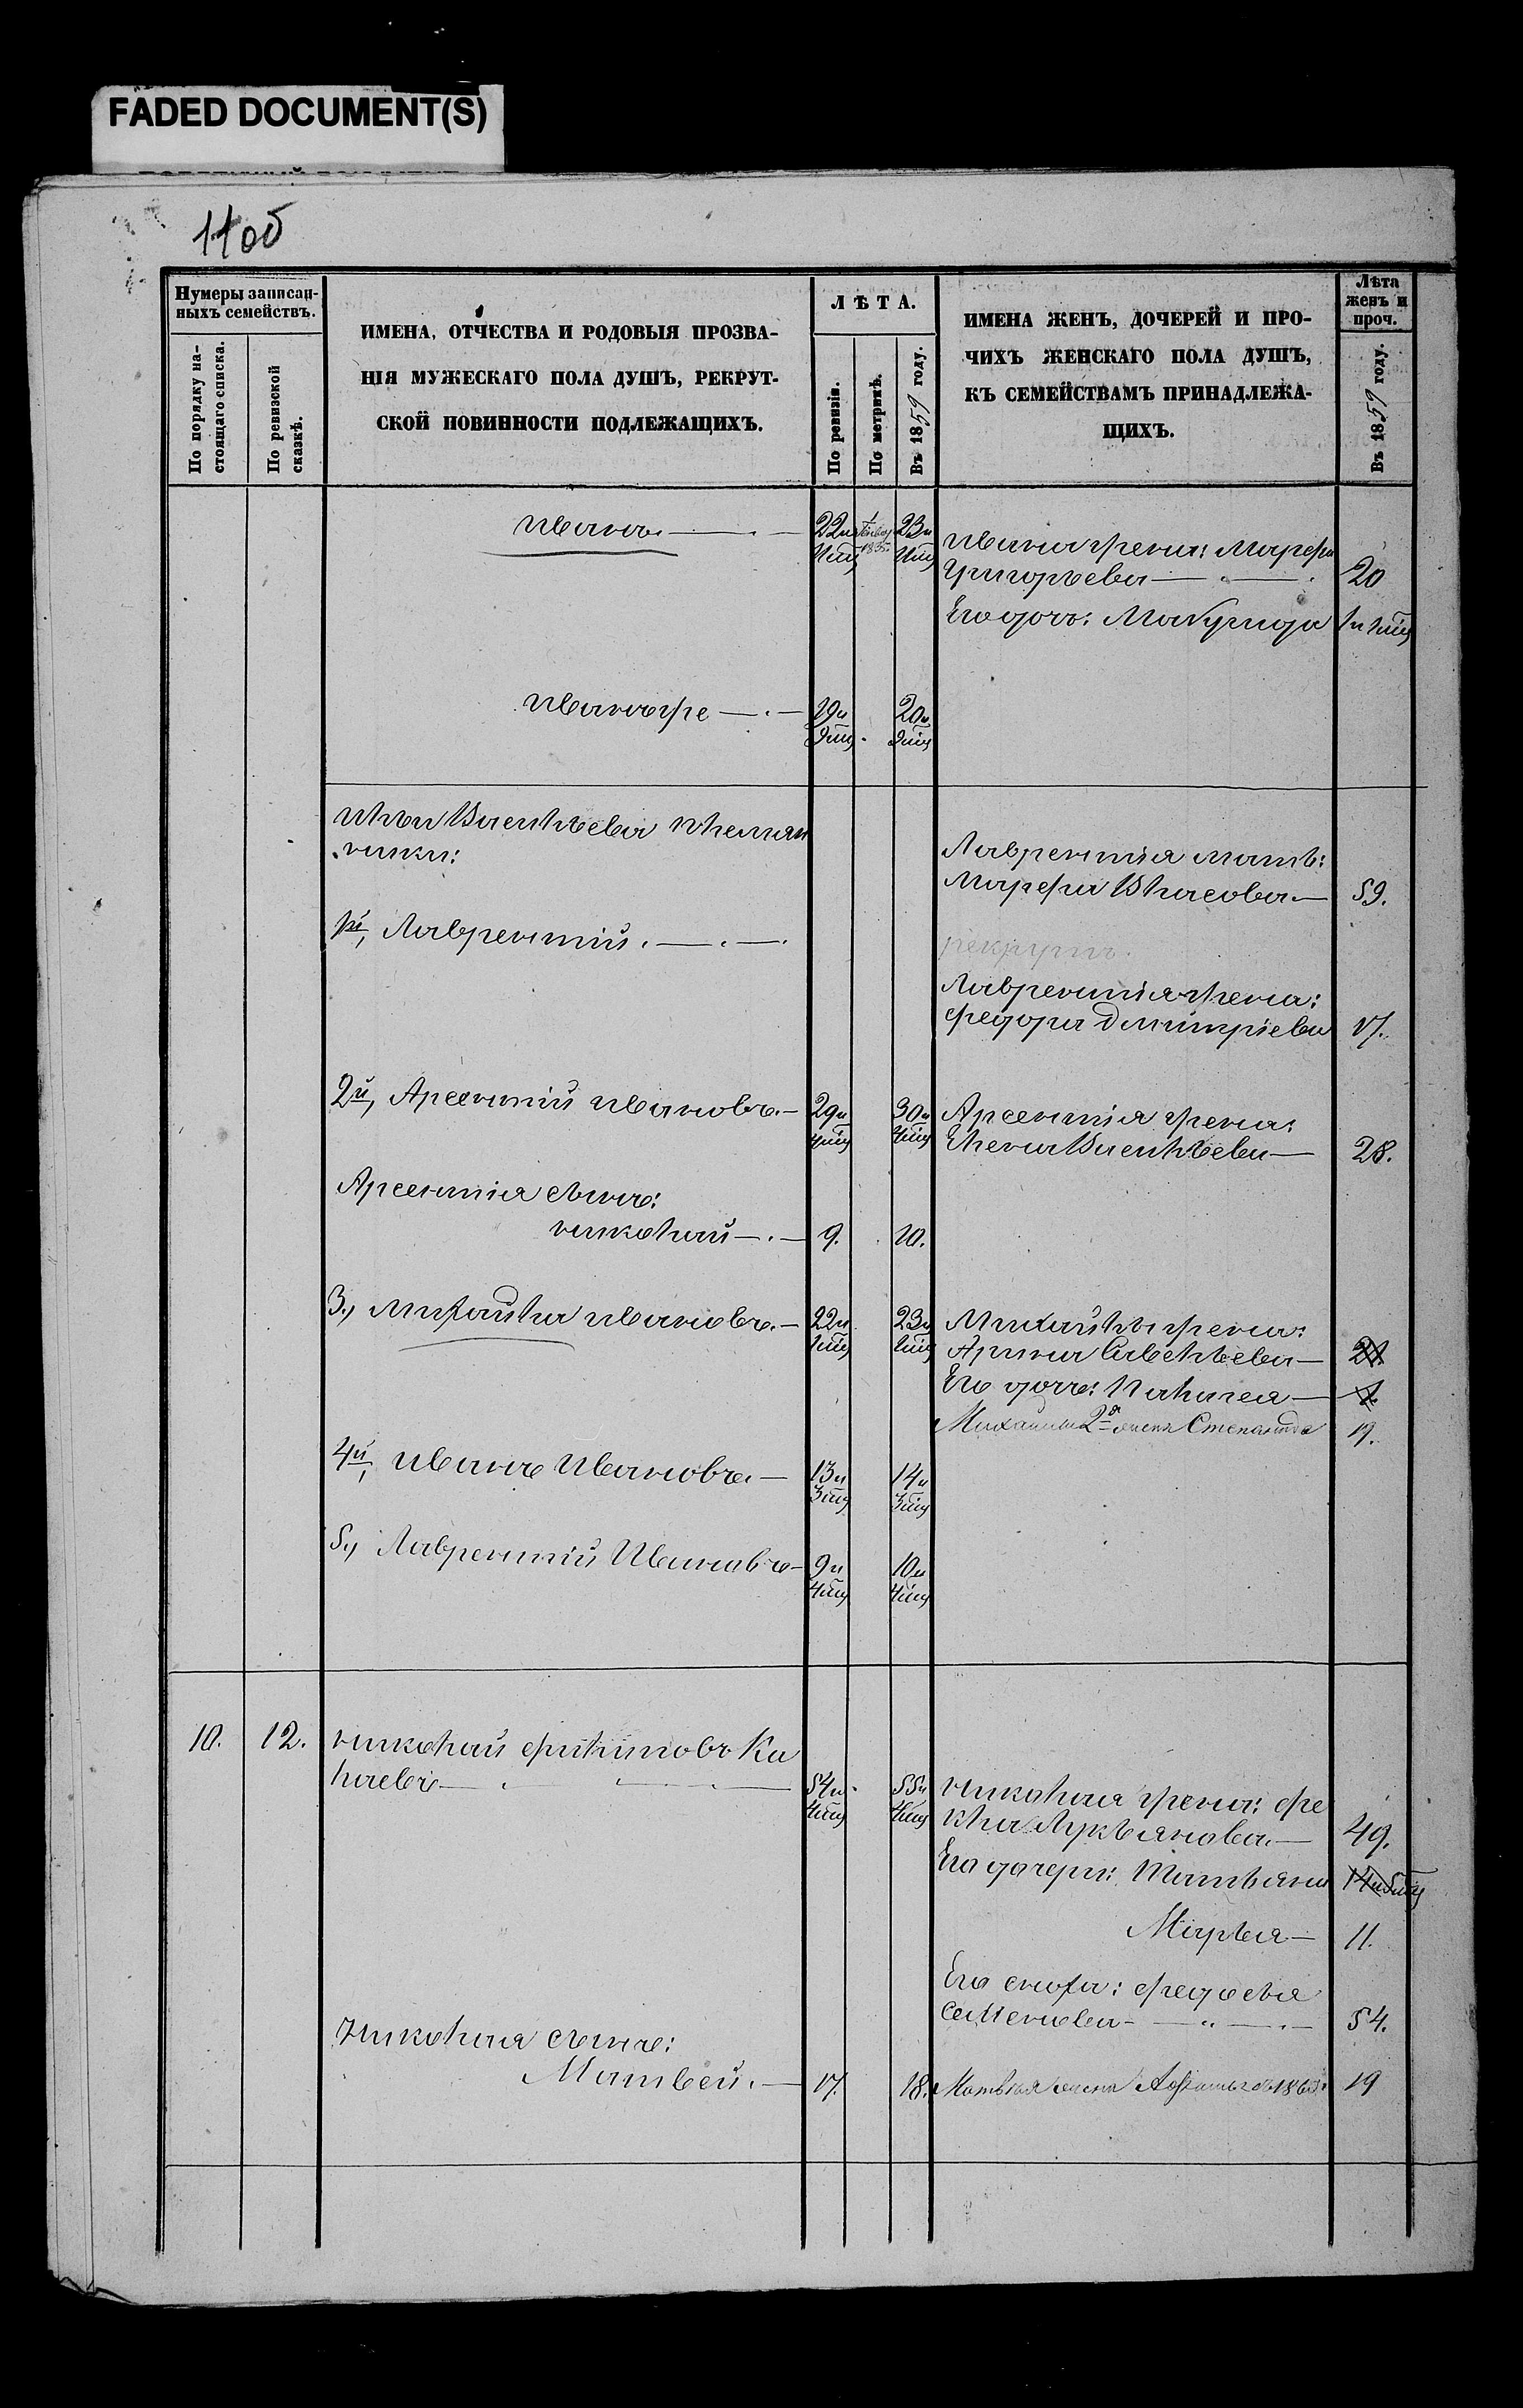 FADED DOCUMENT(S)
11об
Нумеры записан-
ныхъ семействъ.
По порядку на-
стоящаго списка.
По ревизской
сказкѣ.
ИМЕНА, ОТЧЕСТВА И РОДОВЫЯ ПРОЗВА-
НІЯ МУЖЕСКАГО ПОЛА ДУШЪ, РЕКРУТ-
СКОЙ ПОВИННОСТИ ПОДЛЕЖАЩИХЪ.
ЛѢТА.
По ревизіи.
По метрикѣ.
Въ 1859 году.
ИМЕНА ЖЕНЪ, ДОЧЕРЕЙ И ПРО-
ЧИХЪ ЖЕНСКАГО ПОЛА ДУШЪ,
КЪ СЕМЕЙСТВАМЪ ПРИНАДЛЕЖА-
ЩИХЪ.
Лѣта
женъ и
проч.
Въ 1859 году.
Иванъ. 22 и 23 и
1835
Ивана жена: Марфа
Григорьева 20
Его дочь: Макрида
Иванъ же 19 и 20 и
Ильи Васильева племян
ники:
Лаврентія мать:
Марфа Власова 59.
1й, Лаврентій.
рекрутъ.
Лаврентія жена:
Федора Дмитріева 17.
2й, Арсентій Ивановъ. 29 и 30 и
Арсентія жена:
Елена Васильева 28.
Арсентія сынъ:
Николай 9. 10.
3., Михайла Ивановъ. 22 и 23 и
Михайлы жена:
Арина Савельева 21
Его дочь: Палагея 1
Михайлы 2я жена Степанида 19.
4й, Иванъ Ивановъ 13 и 14 и
3 мц 3 мц
5., Лаврентій Ивановъ 9 и 10 и
4 мц 4 мц
10. 12. Николай Филиповъ Ка
лаевъ 54 и 55 и
4 мц 4 мц
Николая жена: Фе
кла Лукьянова 49.
Его дочери: Татьяна 14 и 5 мц
Марья 11.
Его сноха: Федосья
Семенова 54.
Николая сынъ:
Матвей. 17. 18.
Матвѣя жена 19